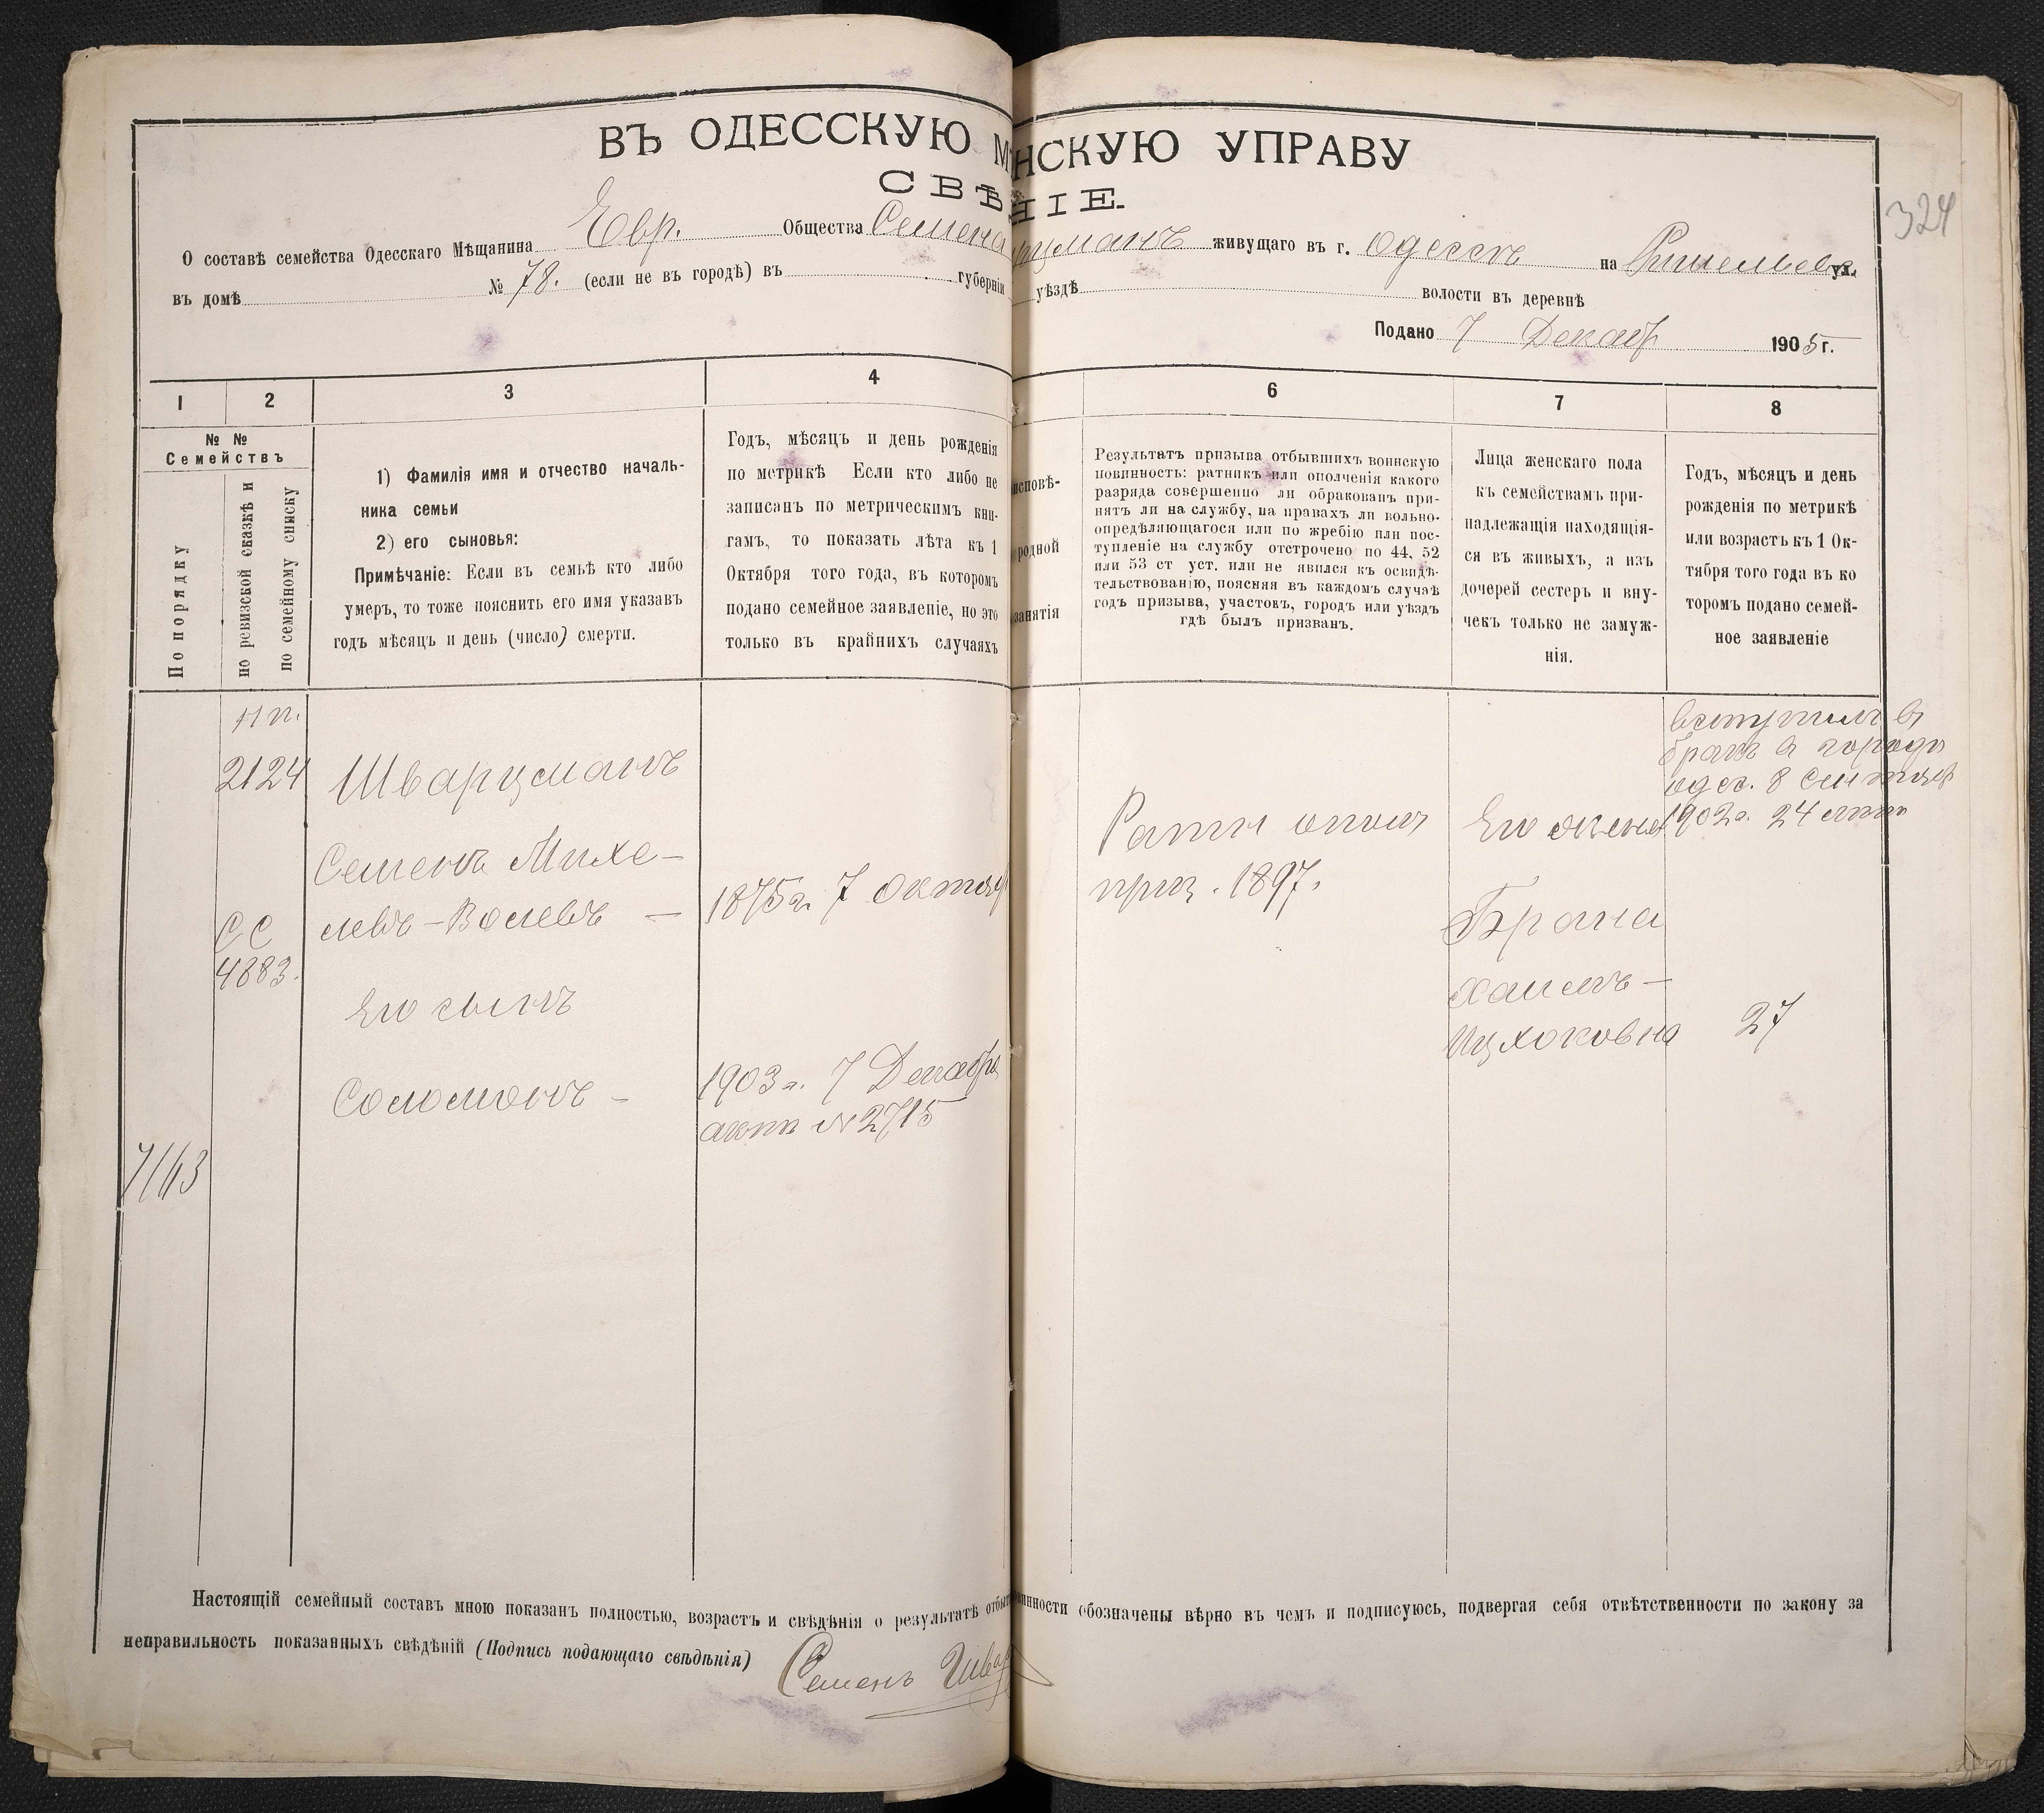 ВЪ ОДЕССКУЮ М НСКУЮ УПРАВУ
СВѢ НІЕ.
324
О составѣ семейства Одесскаго Мѣщанина Евр. Общества Семена рцманъ живущаго въ г. Одессѣ на Ришельевс ул.
въ домѣ № 78. (если не въ городѣ) въ губерніи уѣздѣ волости въ деревнѣ
Подано 7 Декабр 1905 г.
1 2 3 4 6 7 8
№ №
Семействъ
По порядку
по ревизской сказкѣ и
по семейному списку
1) Фамилія имя и отчество началь-
ника семьи
2) его сыновья:
Примѣчаніе: Если въ семьѣ кто либо
умеръ, то тоже пояснить его имя указавъ
годъ мѣсяцъ и день (число) смерти.
Годъ, мѣсяцъ и день рожденія
по метрикѣ Если кто либо не
записанъ по метрическимъ кни-
гамъ, то показать лѣта къ 1
Октября того года, въ которомъ
подано семейное заявленіе, но это
только въ крайнихъ случаяхъ
исповѣ-
родной
занятія
Результатъ призыва отбывшихъ воинскую
повинность: ратникъ или ополченія какого
разряда совершенно ли обракованъ при-
нятъ ли на службу, на правахъ ли вольно-
опредѣляющагося или по жребію или пос-
тупленіе на службу отстрочено по 44, 52
или 53 ст уст. или не явился къ освидѣ-
тельствованію, поясняя въ каждомъ случаѣ
годъ призыва, участокъ, городъ или уѣздъ
гдѣ былъ призванъ.
Лица женскаго пола
къ семействамъ при-
надлежащія находящія-
ся въ живыхъ, а изъ
дочерей сестеръ и вну-
чекъ только не замуж-
нія.
Годъ, мѣсяцъ и день
рожденія по метрикѣ
или возрастъ къ 1 Ок-
тября того года въ ко
торомъ подано семей-
ное заявленіе
нп.
2124
СС
4883.
7/43
Шварцманъ
Семенъ Михе-
левъ-Волевъ —
Его сынъ
Соломонъ -
1875г. 7 октяб
1903г. 7 Декабря
актъ № 2715
Ратн опол
приз. 1897.
Его жена
Брана
Хаимъ-
Ицхоковна
вступил в
брак в город
одес. 8 Сентяб
1902г. 24 лет
27
Настоящій семейный составъ мною показанъ полностью, возрастъ и свѣдѣнія о результатѣ отбы винности обозначены вѣрно въ чемъ и подписуюсь, подвергая себя отвѣтственности по закону за
неправильность показанныхъ свѣдѣній (Подпись подающаго свѣдѣнія) Семенъ Швар